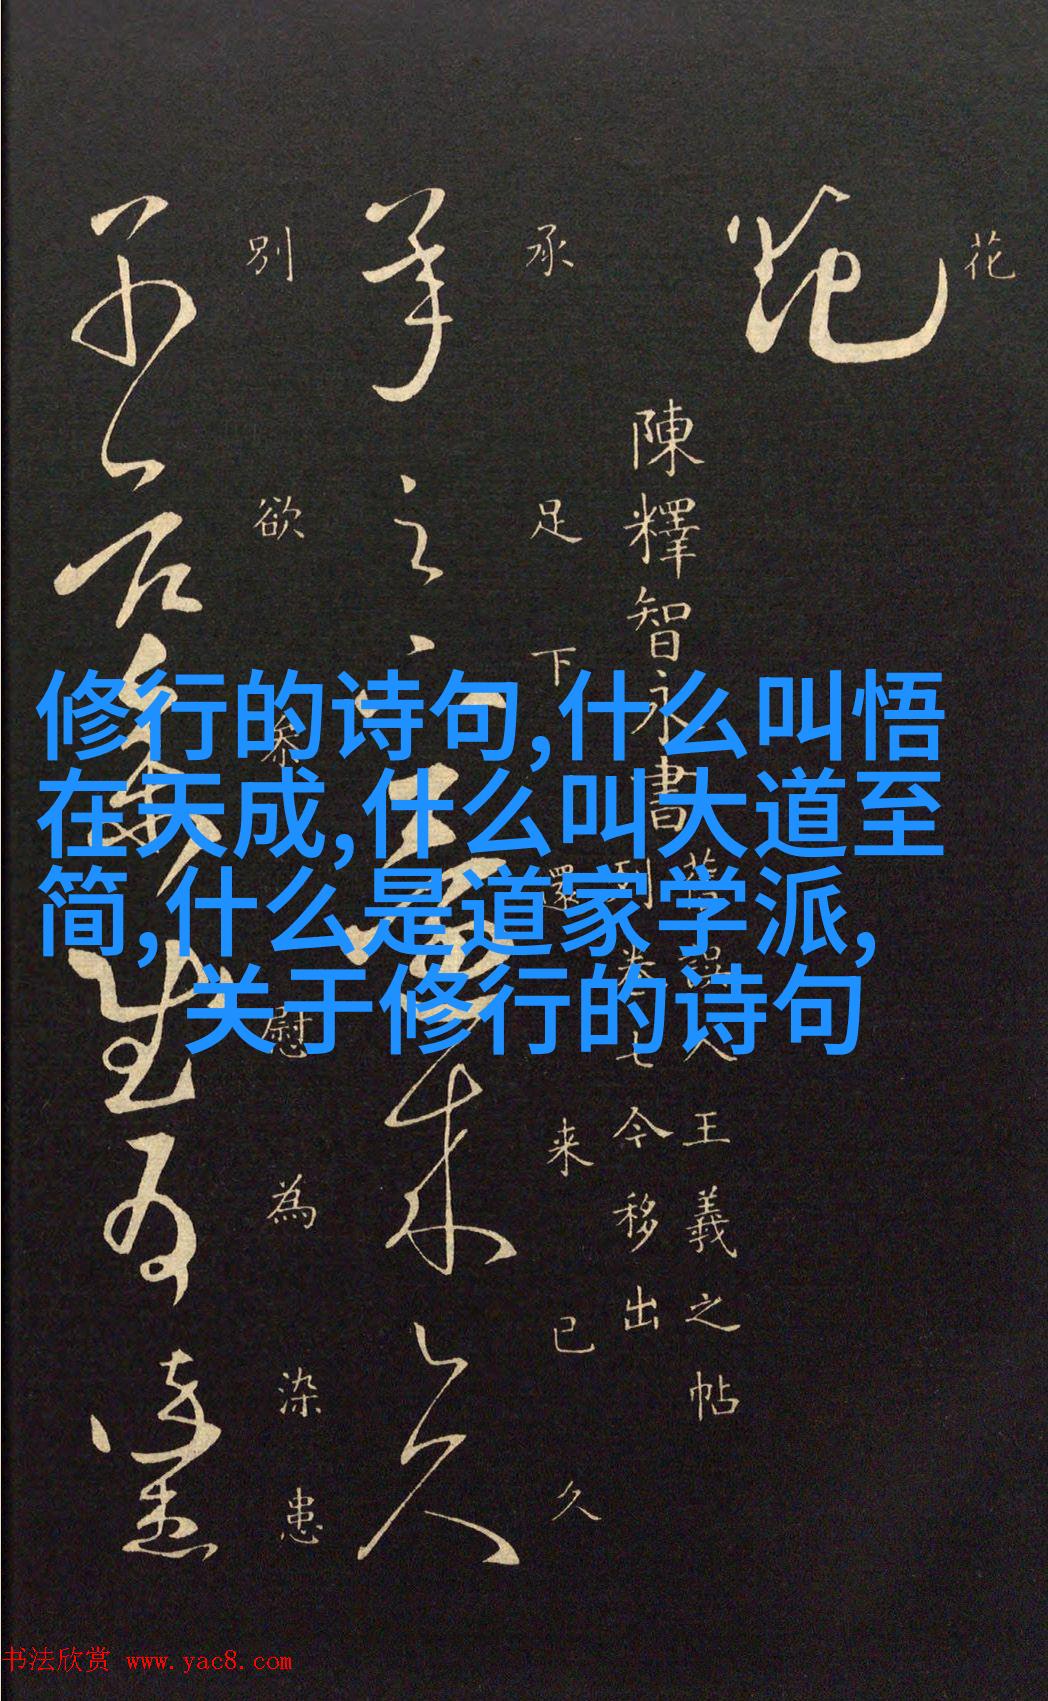 修行的诗句,什么叫悟
在天成,什么叫大道至
简,什么是道家学派,
关于修行的诗句
花
陳釋智永書
舊誤入王羲之帖
列卷七今移出
承足下還来已久
別欲参慰為染患
书法欣赏 www.yac8.com